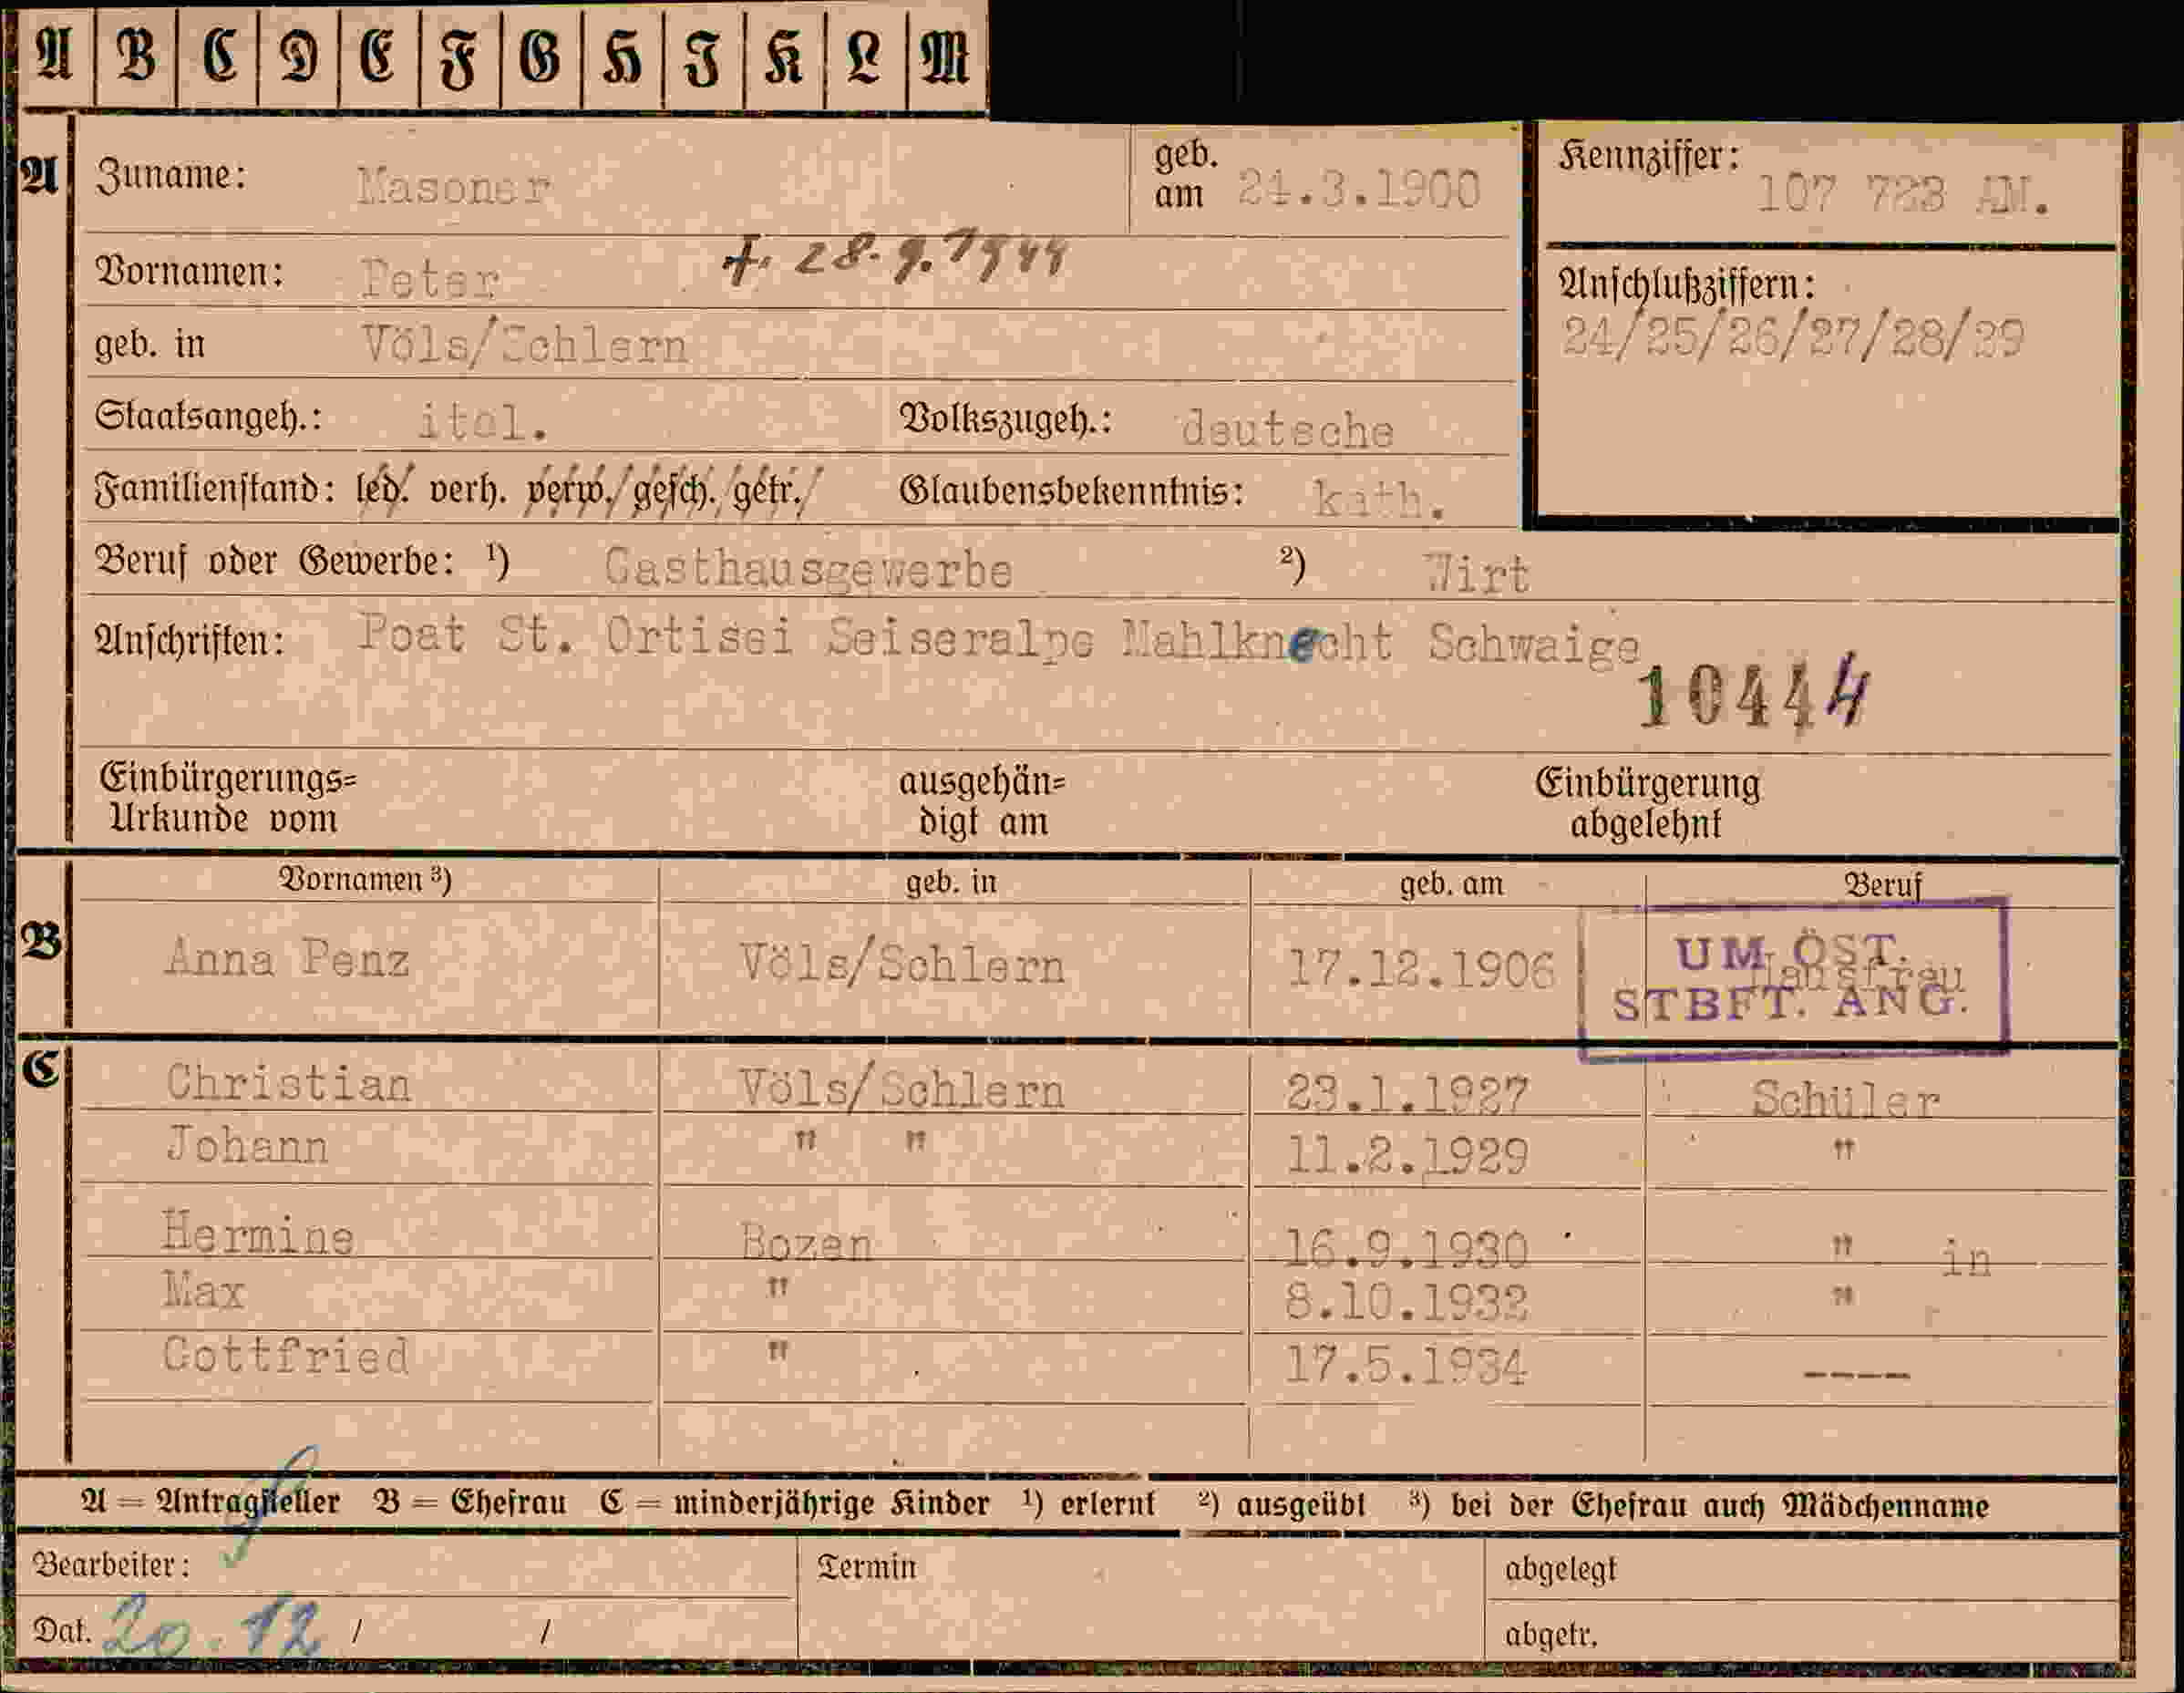 A B C D E F G H I K L M
A Zuname: Masoner geb. am 24.3.1900 Kennziffer: 107 723 AM.
Vornamen: Peter †. 28.9.1944 Anschlußziffern:
geb. in Völs/Schlern 24/25/26/27/28/29
Staatsangeh.: ital. Volkszugeh.: deutsche
Familienstand: led. verh. verw. gesch. getr. Glaubensbekenntnis: kath.
Beruf oder Gewerbe: ¹) Gasthausgewerbe ²) Wirt
Anschriften: Post St. Ortisei Seiseralpe Mahlknecht Schwaige
10444
Einbürgerungs= ausgehän= Einbürgerung
Urkunde vom digt am abgelehnt
Vornamen ³) geb. in geb. am Beruf
B Anna Penz Völs/Schlern 17.12.1906 Hausfrau
UM. ÖST.
STBFT. ANG.
C Christian Völs/Schlern 23.1.1927 Schüler
Johann " " 11.2.1929 "
Hermine Bozen 16.9.1930 " in
Max " 8.10.1932 "
Gottfried " 17.5.1934 ----
A = Antragsteller B = Ehefrau C = minderjährige Kinder ¹) erlernt ²) ausgeübt ³) bei der Ehefrau auch Mädchenname
Bearbeiter: Termin abgelegt
Dat. 20.12 / / abgetr.